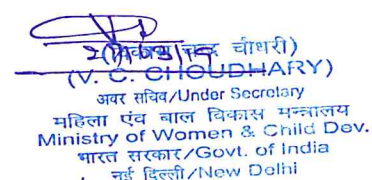 चौधरी)
(V. C. CHOUDHARY)
अवर सचिव/Under Secretary
महिला एंव बाल विकास मन्त्रालय
Ministry of Women & Child Dev.
भारत सरकार/Govt. of India
नई दिल्ली/New Delhi